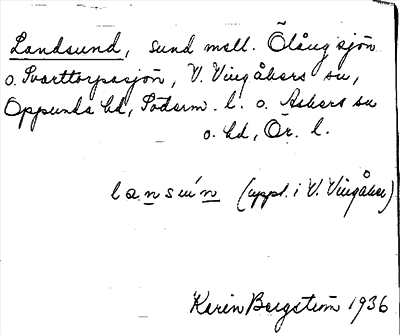 Landsund, sund mell. Ölångsjön
o. Svarttorpasjön, V. Vingåkers sn,
Oppunda hd, Söderm. l. o. Askers sn
o. hd, Ör. l.
lansún (uppt. i V. Vingåker)
Karin Bergström 1936